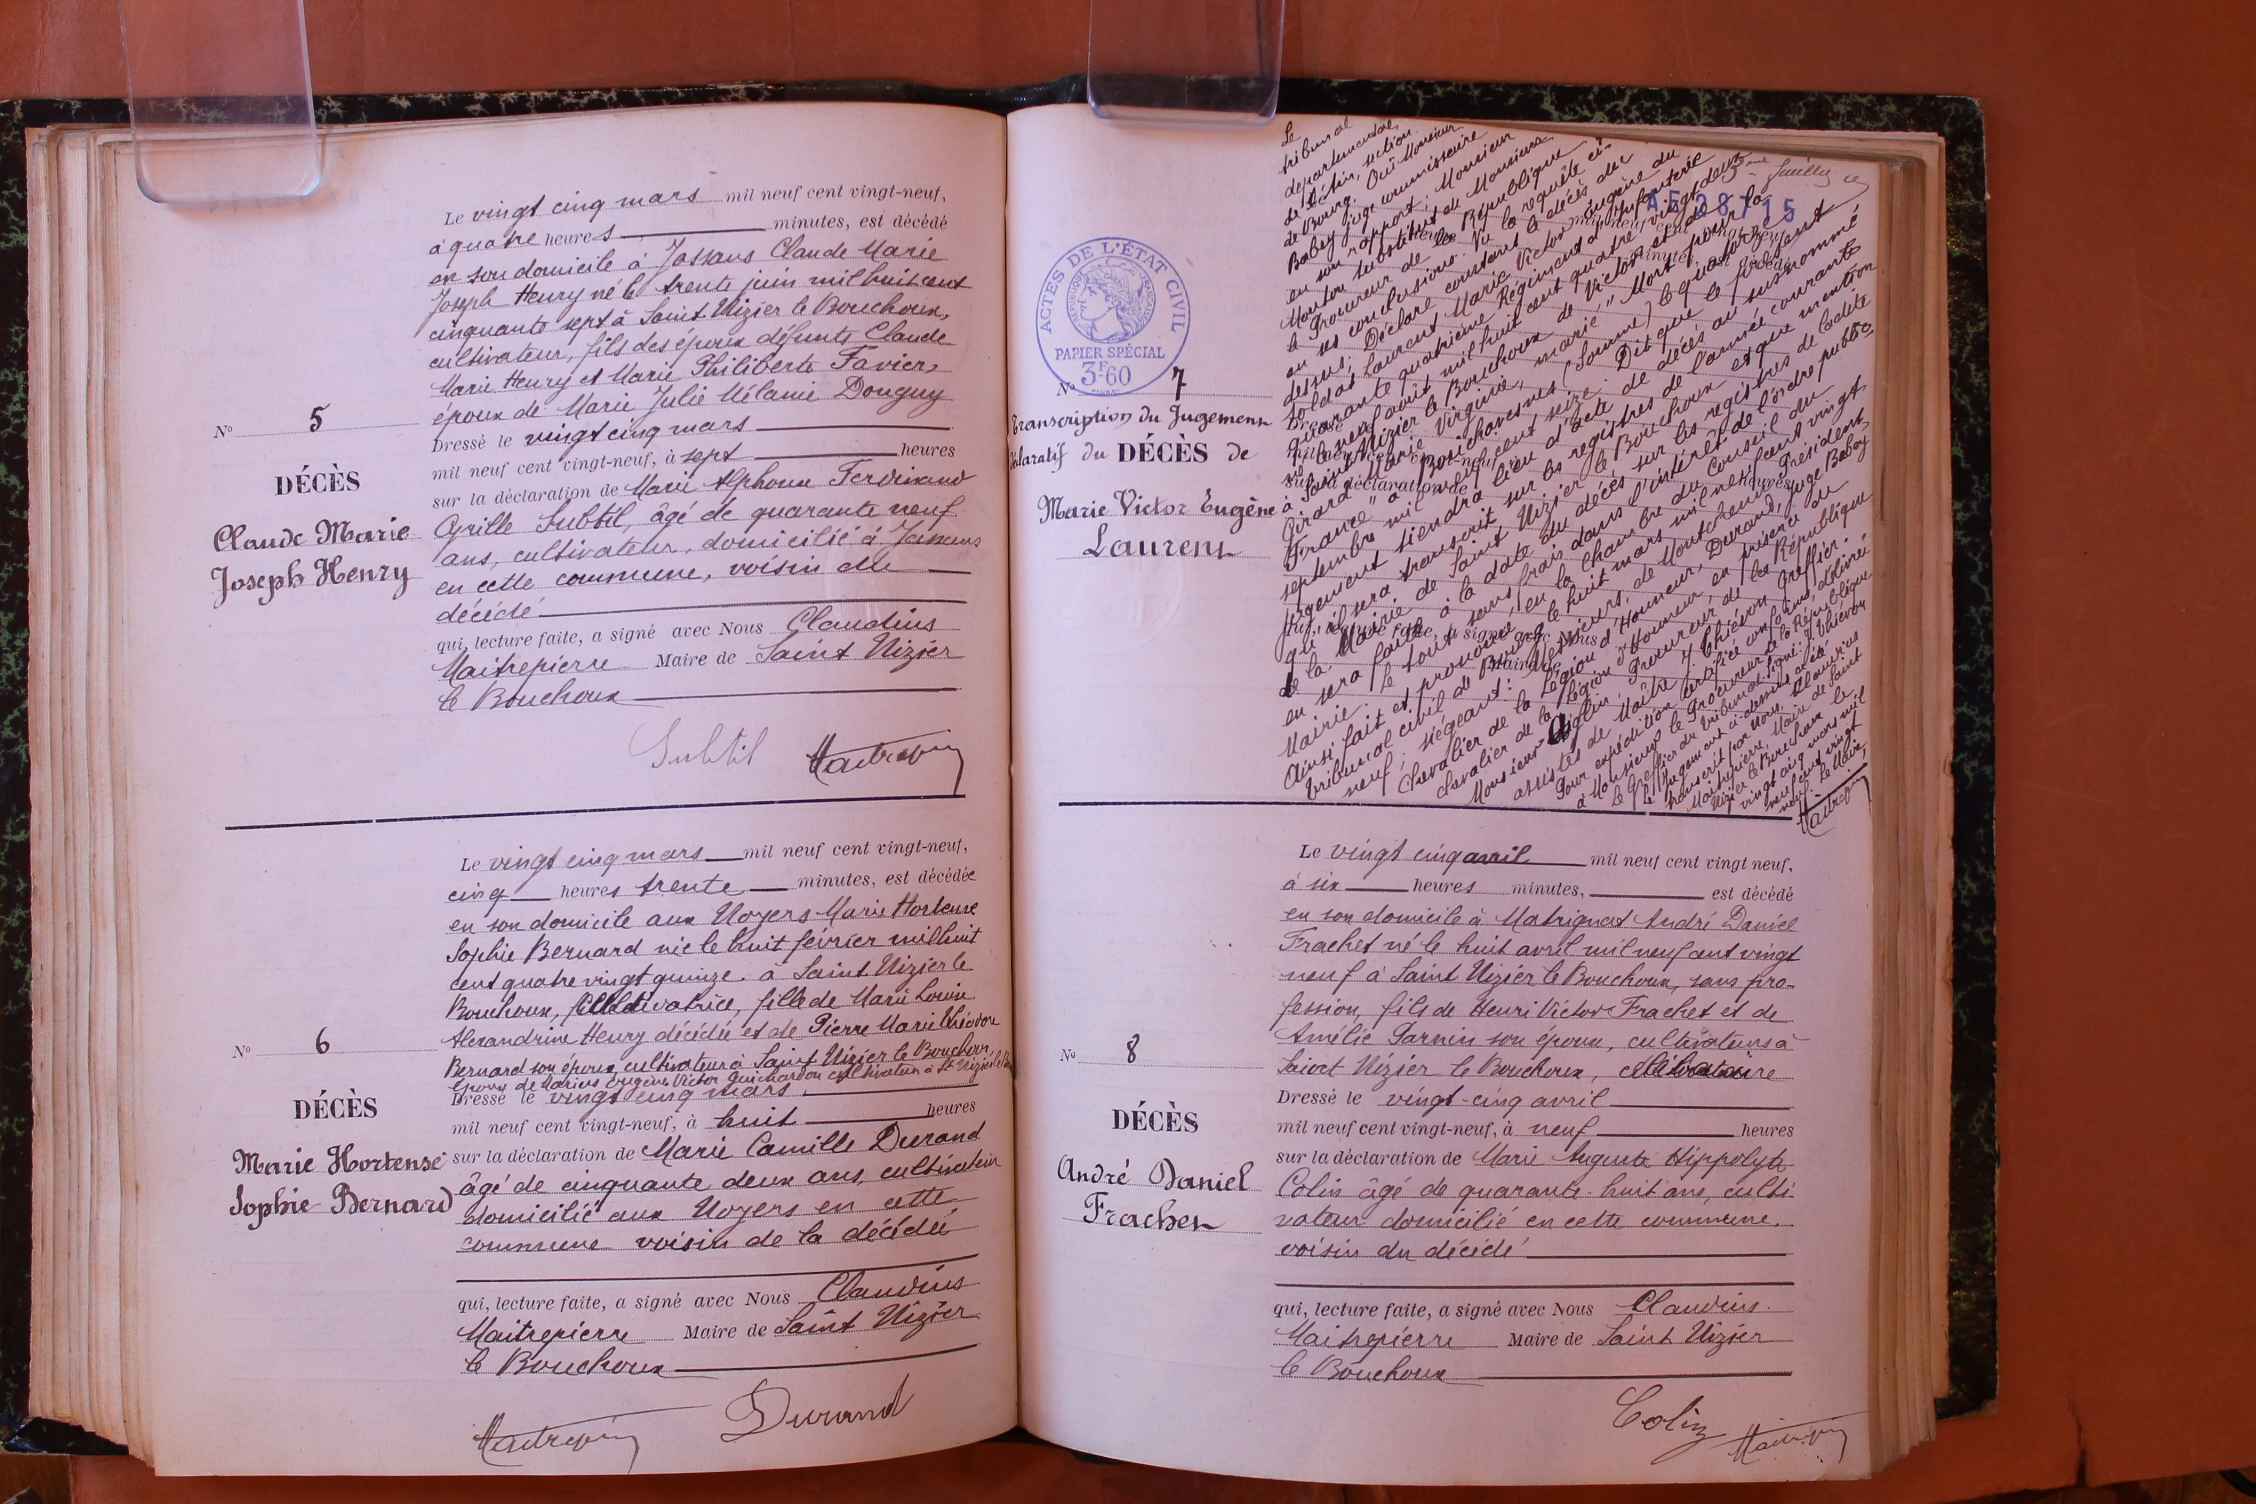 Le vingt cinq mars mil neuf cent vingt-neuf,
à quatre heures minutes, est décédé
en son domicile à Jassans Claude Marie
Joseph Henry né le trente juin mil huit cent
cinquante sept à Saint Nizier le Bouchoux,
cultivateur, fils des époux défunts Claude
Marie Henry et Marie Philiberte Favier,
époux de Marie Julie Mélanie Donguy
Dressé le vingt cinq mars
mil neuf cent vingt-neuf, à sept heures
sur la déclaration de Marie Alphonse Ferdinand
Cyrille Subtil, âgé de quarante neuf
ans, cultivateur, domicilié à Jassans
en cette commune, voisin du
décédé
qui, lecture faite, a signé avec Nous Claudius
Maitrepierre Maire de Saint Nizier
le Bouchoux
Subtil
Maitrepierre
N° 5
DÉCÈS
Claude Marie
Joseph Henry
Le vingt cinq mars mil neuf cent vingt-neuf,
cinq heures trente minutes, est décédée
en son domicile aux Noyers Marie Hortense
Sophie Bernard née le huit février mil huit
cent quatre vingt quinze à Saint Nizier le
Bouchoux, cultivatrice, fille de Marie Louise
Alexandrine Henry décédée et de Pierre Marie Théodore
Bernard son époux, cultivateur à Saint Nizier le Bouchoux,
épouse de Marius Eugène Victor Guichardon cultivateur à St Nizier le Boux
Dressé le vingt cinq mars
mil neuf cent vingt-neuf, à huit heures
sur la déclaration de Marie Camille Durand
âgé de cinquante deux ans, cultivateur
domicilié aux Noyers en cette
commune voisin de la décédée
qui, lecture faite, a signé avec Nous Claudius
Maitrepierre Maire de Saint Nizier
le Bouchoux
Maitrepierre
Durand
N° 6
DÉCÈS
Marie Hortense
Sophie Bernard
ACTES DE L'ÉTAT CIVIL
PAPIER SPÉCIAL
3F60
N° 7
Transcription du Jugement
déclaratif du DÉCÈS de
Marie Victor Eugène
Laurent
Le
tribunal
départemental
de l'Ain, section
de Bourg. Ouï Monsieur
Babey juge commissaire
en son rapport, Monsieur
Mouton substitut de Monsieur
le Procureur de la République
en ses conclusions. Vu la requête ci-
dessus; Déclare constant le décès du
soldat Laurent Marie Victor Eugène du
quarante quatrième Régiment d'infanterie
né le neuf avril mil huit cent quatre vingt deux
à Saint Nizier le Bouchoux de Victor et de
Girard Marie Virginie, marié "Mort pour la
France" à Bouchavesnes (Somme) le quatorze
septembre mil neuf cent seize. Dit que le présent
jugement tiendra lieu d'acte de décès au susnommé
qu'il sera transcrit sur les registres de l'année courante
de la Mairie de Saint Nizier le Bouchoux et que mention
en sera faite à la date du décès sur les registres de ladite
Mairie. Le tout sans frais dans l'intérêt de l'ordre public
Ainsi fait et prononcé, en la Chambre du Conseil du
tribunal civil de Bourg le huit mars mil neuf cent vingt
neuf; siégeant: Messieurs, de Montchenu, Président
Chevalier de la Légion d'Honneur, Durand, juge Babey
chevalier de la Légion d'Honneur, en présence de
Monsieur Procureur de la République
assistés de Maître J. Thiévon Greffier.
Pour expédition certifiée conforme, délivré
à Monsieur le Procureur de la République
Le Greffier du tribunal. Signé: J. Thiévon
Le Jugement ci-dessus a été
transcrit par Nous, Claudius
Maitrepierre, Maire de Saint
Nizier le Bouchoux le
vingt cinq mars mil
neuf cent vingt
neuf. Le Maire,
Maitrepierre
Le vingt cinq avril mil neuf cent vingt neuf,
à six heures minutes, est décédé
en son domicile à Matrignat André Daniel
Frachet né le huit avril mil neuf cent vingt
neuf à Saint Nizier le Bouchoux, sans pro-
fession, fils de Henri Victor Frachet et de
Amélie Parnin son épouse, cultivateurs à
Saint Nizier le Bouchoux, célibataire
Dressé le vingt-cinq avril
mil neuf cent vingt-neuf, à neuf heures
sur la déclaration de Marie Auguste Hippolyte
Colin âgé de quarante-huit ans, culti
vateur domicilié en cette commune.
voisin du décédé
qui, lecture faite, a signé avec Nous Claudius
Maitrepierre Maire de Saint Nizier
le Bouchoux
Colin
Maitrepierre
N° 8
DÉCÈS
André Daniel
Frachet